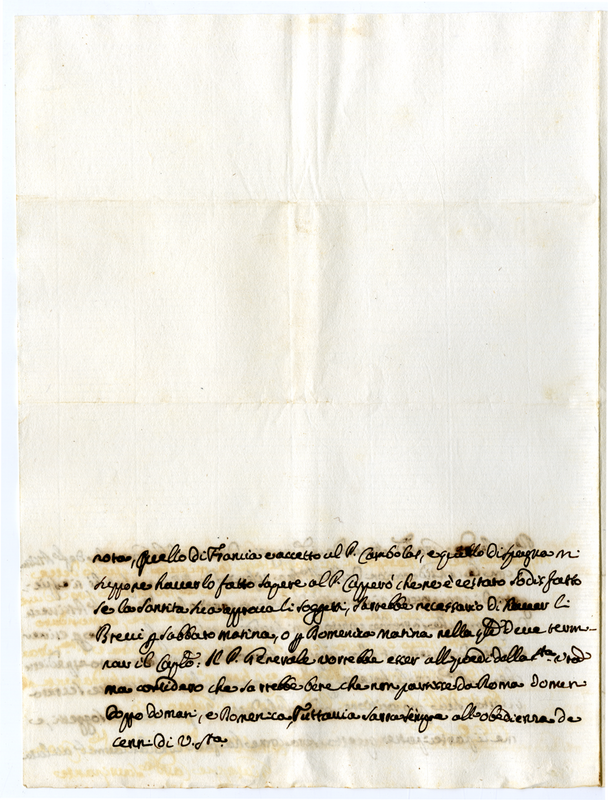 nota, quello di Francia è accetto al P. Carabolas, e quello di spagna m
suppone haverlo fatto sapere al P. che ne è restato sodisfatto
se la Santita sua approva li soggetti, sarrebbe necessario di havere li
Brevi p sabbato matina, o p Domenica matina nella qle Deve termi-
nare il Caplo: Il P. Generale vorrebbe esser alli piedi della Sta.
ma considero che sarrebbe bene che non partisse da Roma
Doppo domani, e Domenica tuttavia sarra sempre all obedienza de
cenni di V. Sta.